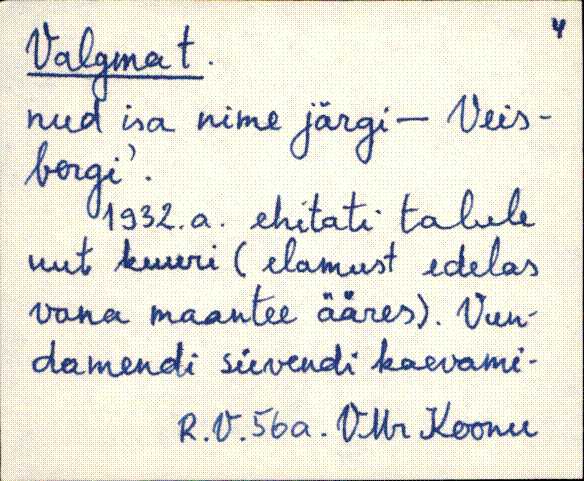 4
Valgmat.
nud isa nime järgi — Veis-
bergi'.
1932. a. ehitati talule
uut kuuri (elamust edelas
vana maantee ääres). Vun-
damendi süvendi kaevami-
R.V. 56a. VMr Koonu